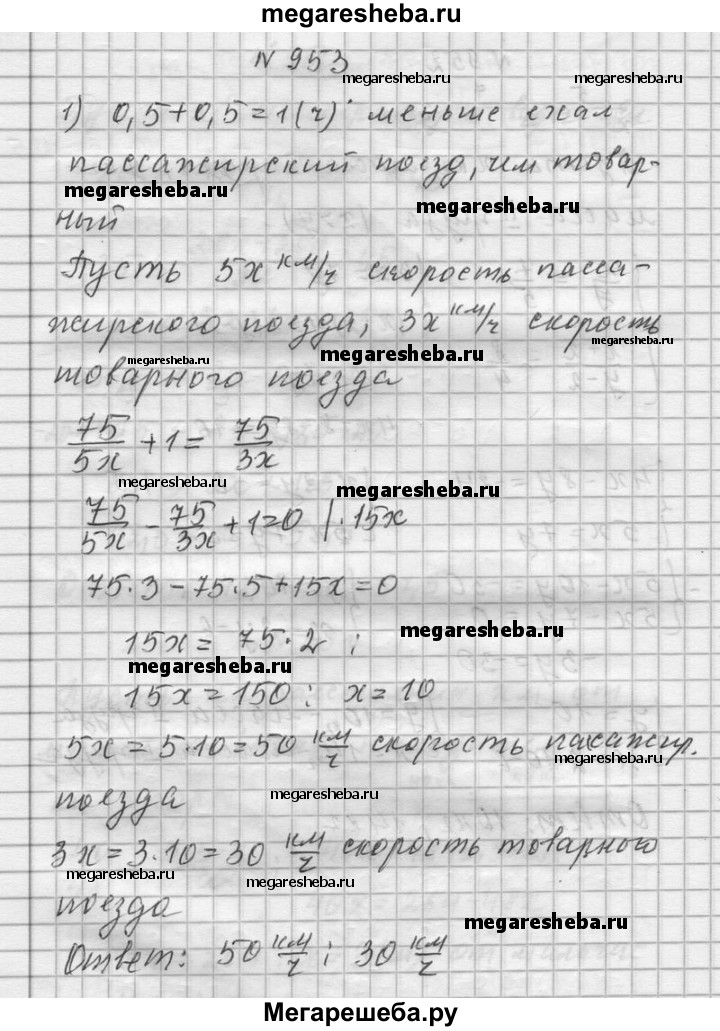 megaresheba.ru
N 953
megaresheba.ru
megaresheba.ru
1) 0,5+0,5=1(ч) меньше ехал
пассажирский поезд, чем товар-
megaresheba.ru
megaresheba.ru
ный
Пусть 5x км/ч скорость пасса-
жирского поезда, 3x км/ч скорость
megaresheba.ru
megaresheba.ru
megaresheba.ru
товарного поезда
75/5x + 1 = 75/3x
megaresheba.ru
megaresheba.ru
75/5x - 75/3x + 1=0 |·15x
75·3-75·5+15x=0
megaresheba.ru
15x = 75·2 ;
megaresheba.ru
15x=150; x=10
5x=5·10=50 км/ч скорость пасажир.
megaresheba.ru
поезда
megaresheba.ru
3x=3·10=30 км/ч скорость товарного
megaresheba.ru
megaresheba.ru
поезда
megaresheba.ru
Ответ: 50 км/ч ; 30 км/ч
Мегарешеба.ру